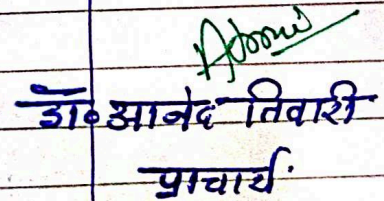 डा० आनंद तिवारी
प्राचार्य